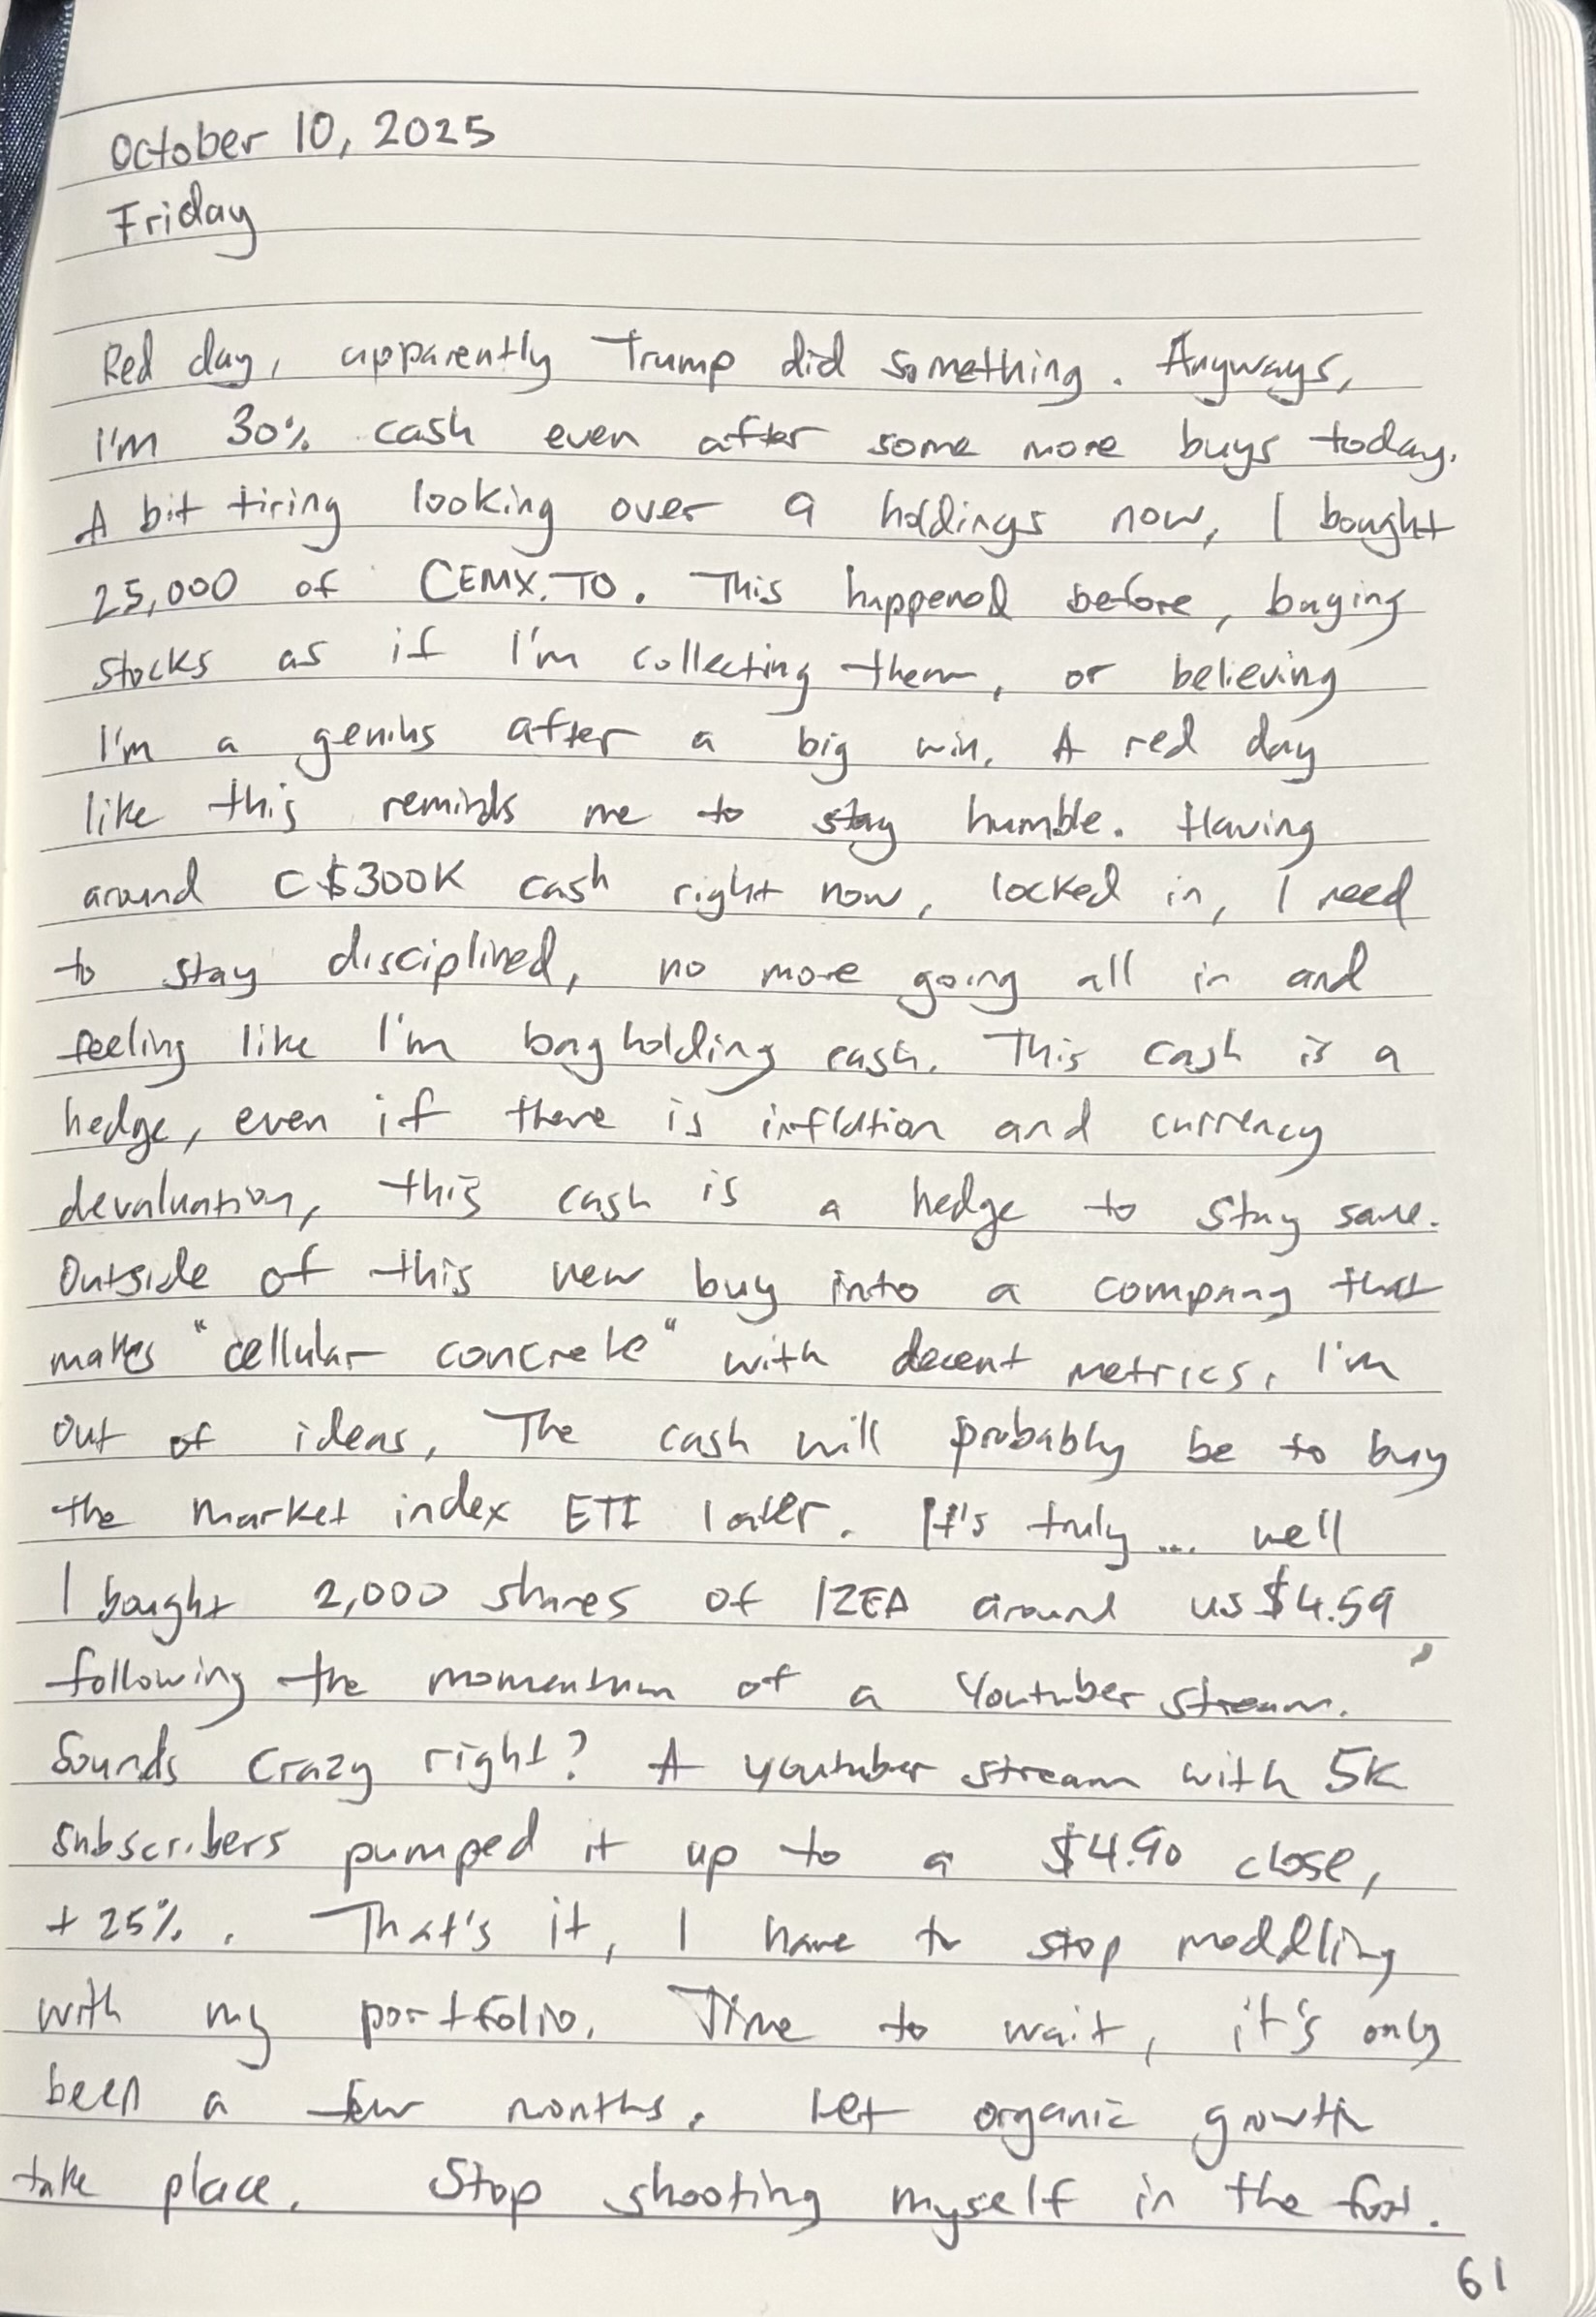 October 10, 2025
Friday
Red day, apparently Trump did something. Anyways,
I'm 30% cash even after some more buys today.
A bit tiring looking over 9 holdings now, I bought
25,000 of CEMX.TO. This happened before, buying
stocks as if I'm collecting them, or believing
I'm a genius after a big win. A red day
like this reminds me to stay humble. Having
around C$300K cash right now, locked in, I need
to stay disciplined, no more going all in and
feeling like I'm bagholding cash. This cash is a
hedge, even if there is inflation and currency
devaluation, this cash is a hedge to stay sane.
Outside of this new buy into a company that
makes "cellular concrete" with decent metrics, I'm
out of ideas. The cash will probably be to buy
the market index ETF later. It's truly... well
I bought 2,000 shares of IZEA around US$4.59
following the momentum of a Youtuber stream.
Sounds crazy right? A youtuber stream with 5K
subscribers pumped it up to a $4.90 close,
+25%. That's it, I have to stop meddling
with my portfolio. Time to wait, it's only
been a few months. Let organic growth
take place. Stop shooting myself in the foot.
61